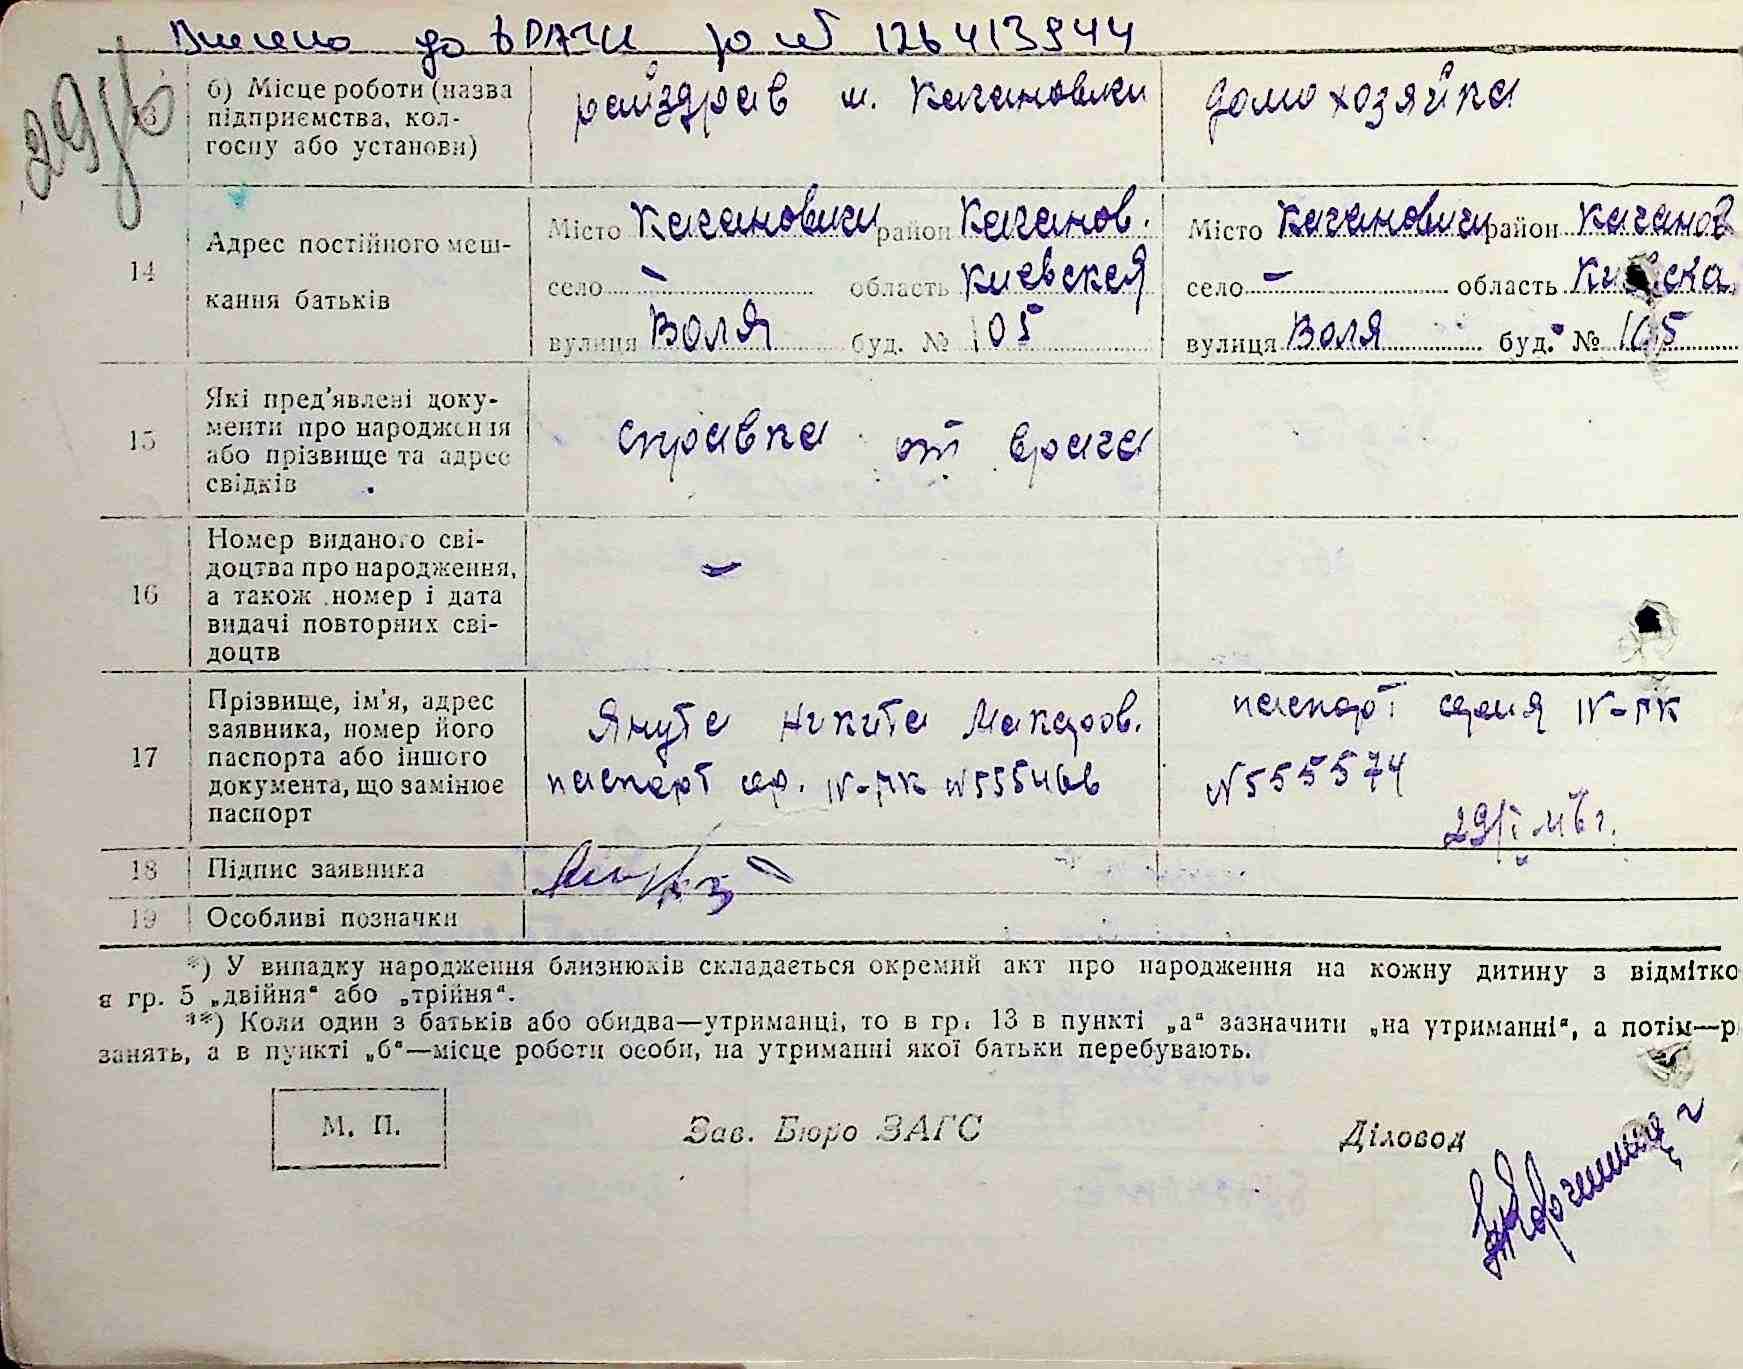 Внесено до ДРАЦС за № 126413944
29/V
13 б) Місце роботи (назва підприємства, колгоспу або установи) райздрав м. Кагановичи домохозяйка
14 Адрес постійного мешкання батьків
Місто Кагановичи район Каганов. Місто Кагановичи район Каганов
село – область Киевская село – область Киевска
вулиця Воля буд. № 105 вулиця Воля буд. № 105
15 Які пред'явлені документи про народження або прізвище та адрес свідків справка от врача
16 Номер виданого свідоцтва про народження, а також номер і дата видачі повторних свідоцтв –
17 Прізвище, ім'я, адрес заявника, номер його паспорта або іншого документа, що замінює паспорт
Янута Никита Макаров. паспорт серия IV-ПК
паспорт сер. IV-ПК № 555466 № 555574
18 Підпис заявника
19 Особливі позначки
*) У випадку народження близнюків складається окремий акт про народження на кожну дитину з відмітко
в гр. 5 „двійня“ або „трійня“.
**) Коли один з батьків або обидва—утриманці, то в гр. 13 в пункті „а“ зазначити „на утриманні“, а потім—р
занять, а в пункті „б“—місце роботи особи, на утриманні якої батьки перебувають.
М. П. Зав. Бюро ЗАГС Діловод